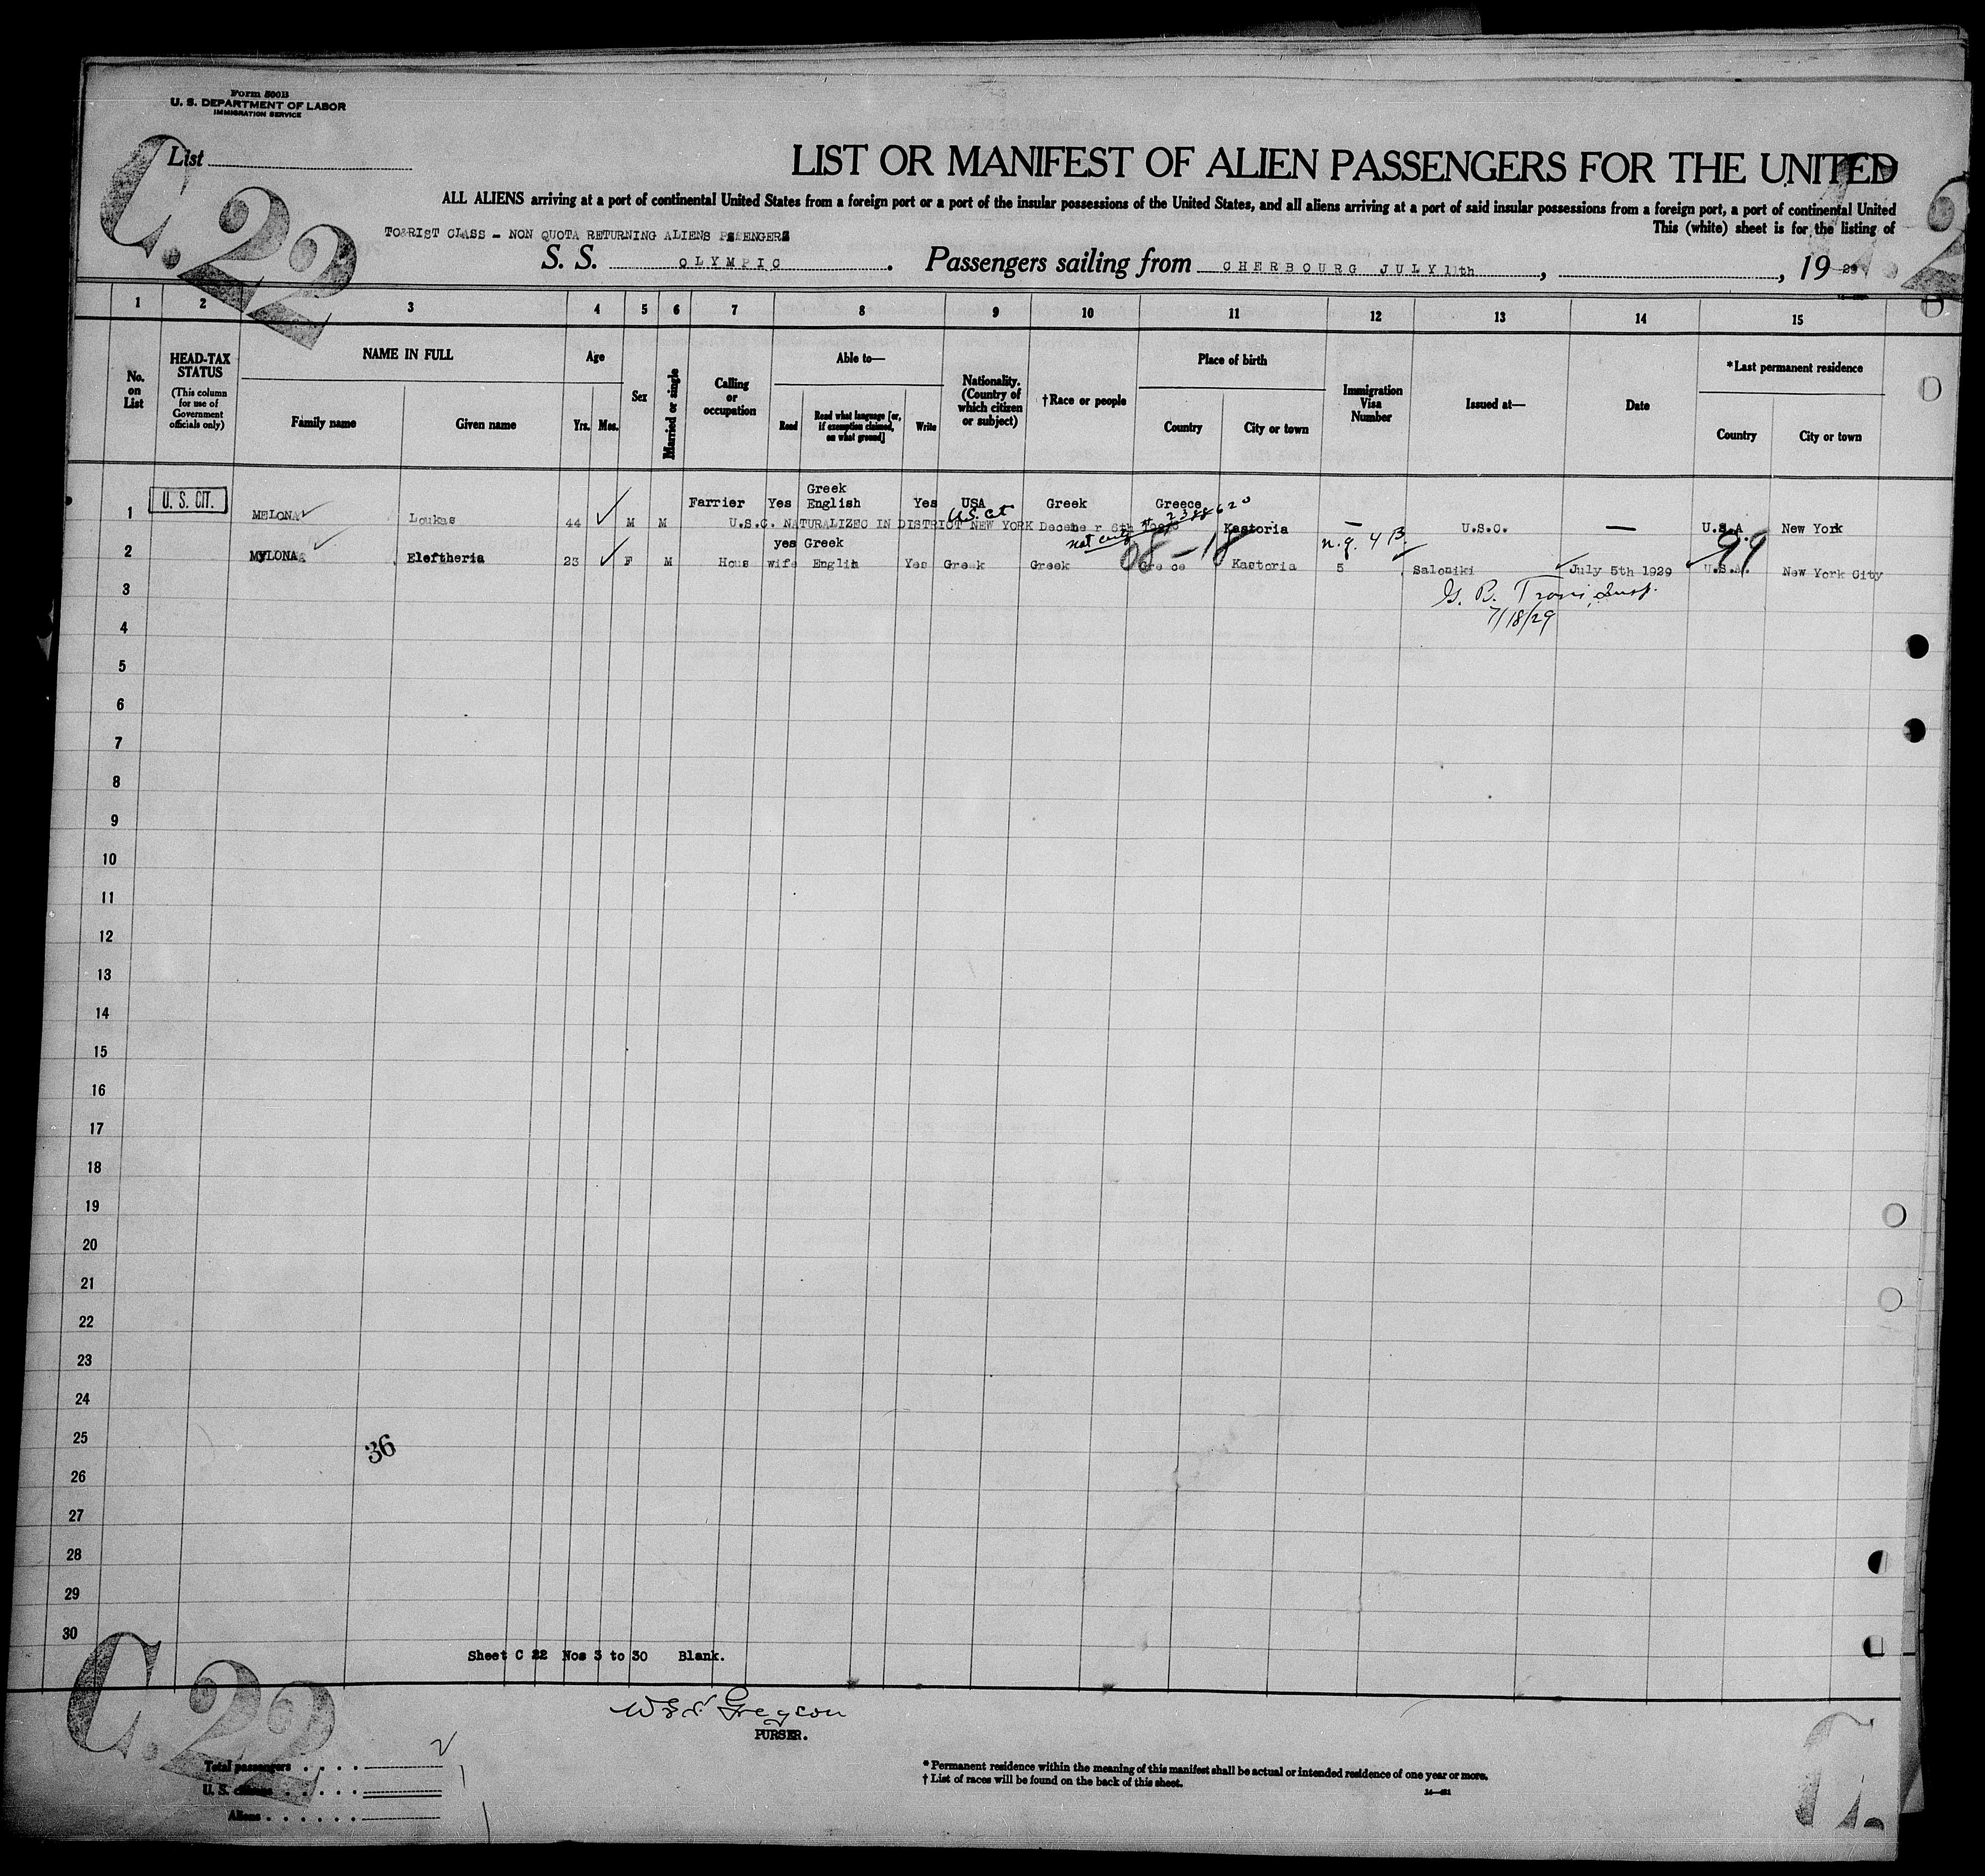 Form 500B
U. S. DEPARTMENT OF LABOR
IMMIGRATION SERVICE
C. 22
List
LIST OR MANIFEST OF ALIEN PASSENGERS FOR THE UNITED
ALL ALIENS arriving at a port of continental United States from a foreign port or a port of the insular possessions of the United States, and all aliens arriving at a port of said insular possessions from a foreign port, a port of continental United
This (white) sheet is for the listing of
TOURIST CLASS - NON QUOTA RETURNING ALIENS
S. S. OLYMPIC. Passengers sailing from CHERBOURG JULY 11th, , 19 29
1 2 3 4 5 6 7 8 9 10 11 12 13 14 15
No. on List
HEAD-TAX STATUS
(This column for use of Government officials only)
NAME IN FULL
Family name Given name
Age
Yrs. Mos.
Sex
Married or single
Calling or occupation
Able to—
Read Read what language [or, if exemption claimed, on what ground] Write
Nationality. (Country of which citizen or subject)
†Race or people
Place of birth
Country City or town
Immigration Visa Number
Issued at—
Date
*Last permanent residence
Country City or town
1 U. S. CIT. MELONA Loukas 44 M M Farrier Yes Greek English Yes USA Greek Greece Kastoria — U.S.C. — U.S.A. New York
U.S. Cit
U.S.C. NATURALIZEC IN DISTRICT NEW YORK Decembe r 6th
n.q. 4 B.
99
2 MYLONA Eleftheria 23 F M Hous wife yes Greek Englih Yes Greek Greek Greece Kastoria 5 Saloniki July 5th 1929 U.S.A. New York City
7/18/29
3
4
5
6
7
8
9
10
11
12
13
14
15
16
17
18
19
20
21
22
23
24
25
36
26
27
28
29
30
Sheet C 22 Nos 3 to 30 Blank.
C. 22
PURSER.
Total passengers
U. S. citizens
Aliens
* Permanent residence within the meaning of this manifest shall be actual or intended residence of one year or more.
† List of races will be found on the back of this sheet.